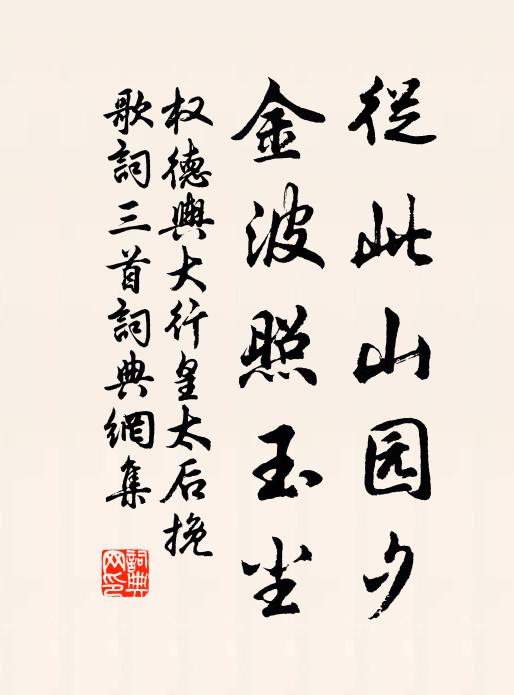 從此山园夕
金波照玉尘
权德舆大行皇太后挽
歌詞三首詞典網集
詞典
网印